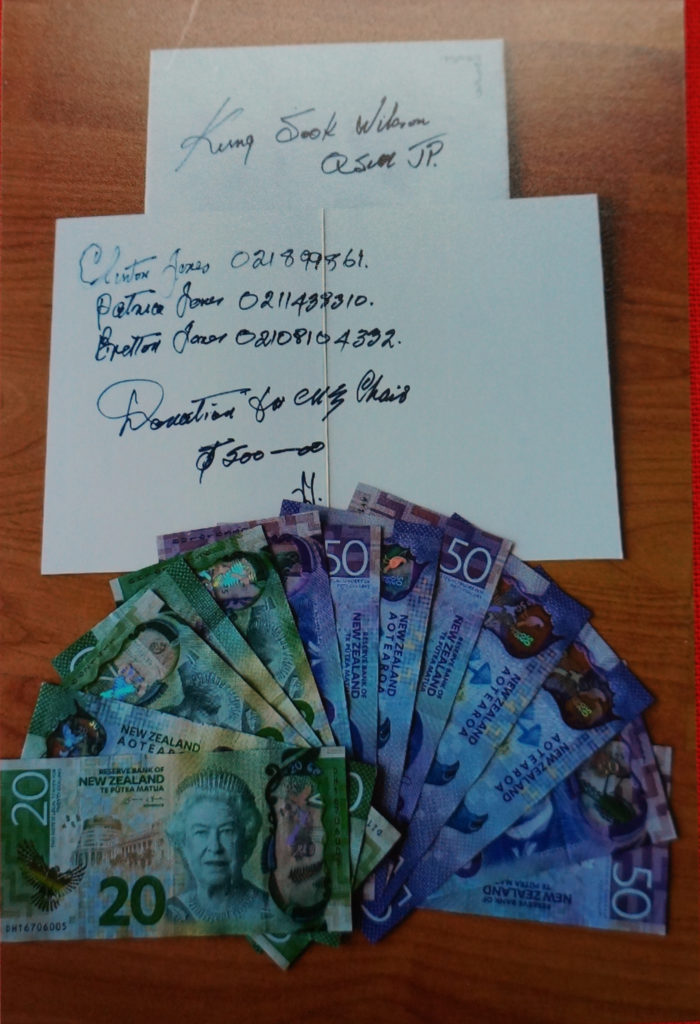 Kung Sook Wilson
QSM JP.
Clinton Jones
Jones 0211438310.
Bretton Jones 02108104332.
Donation for
$500—00
50
NEW ZEALAND
AOTEAROA
RESERVE BANK OF
NEW ZEALAND
TE PUTEA MATUA
50
NEW ZEALAND
AOTEAROA
NEW ZEALAND
AOTEAROA
NEW ZEALAND
AOTEAROA
NEW ZEALAND
20
RESERVE BANK OF
NEW ZEALAND
TE PUTEA MATUA
20
DH16706005
RESERVE BANK OF
NEW ZEALAND
50